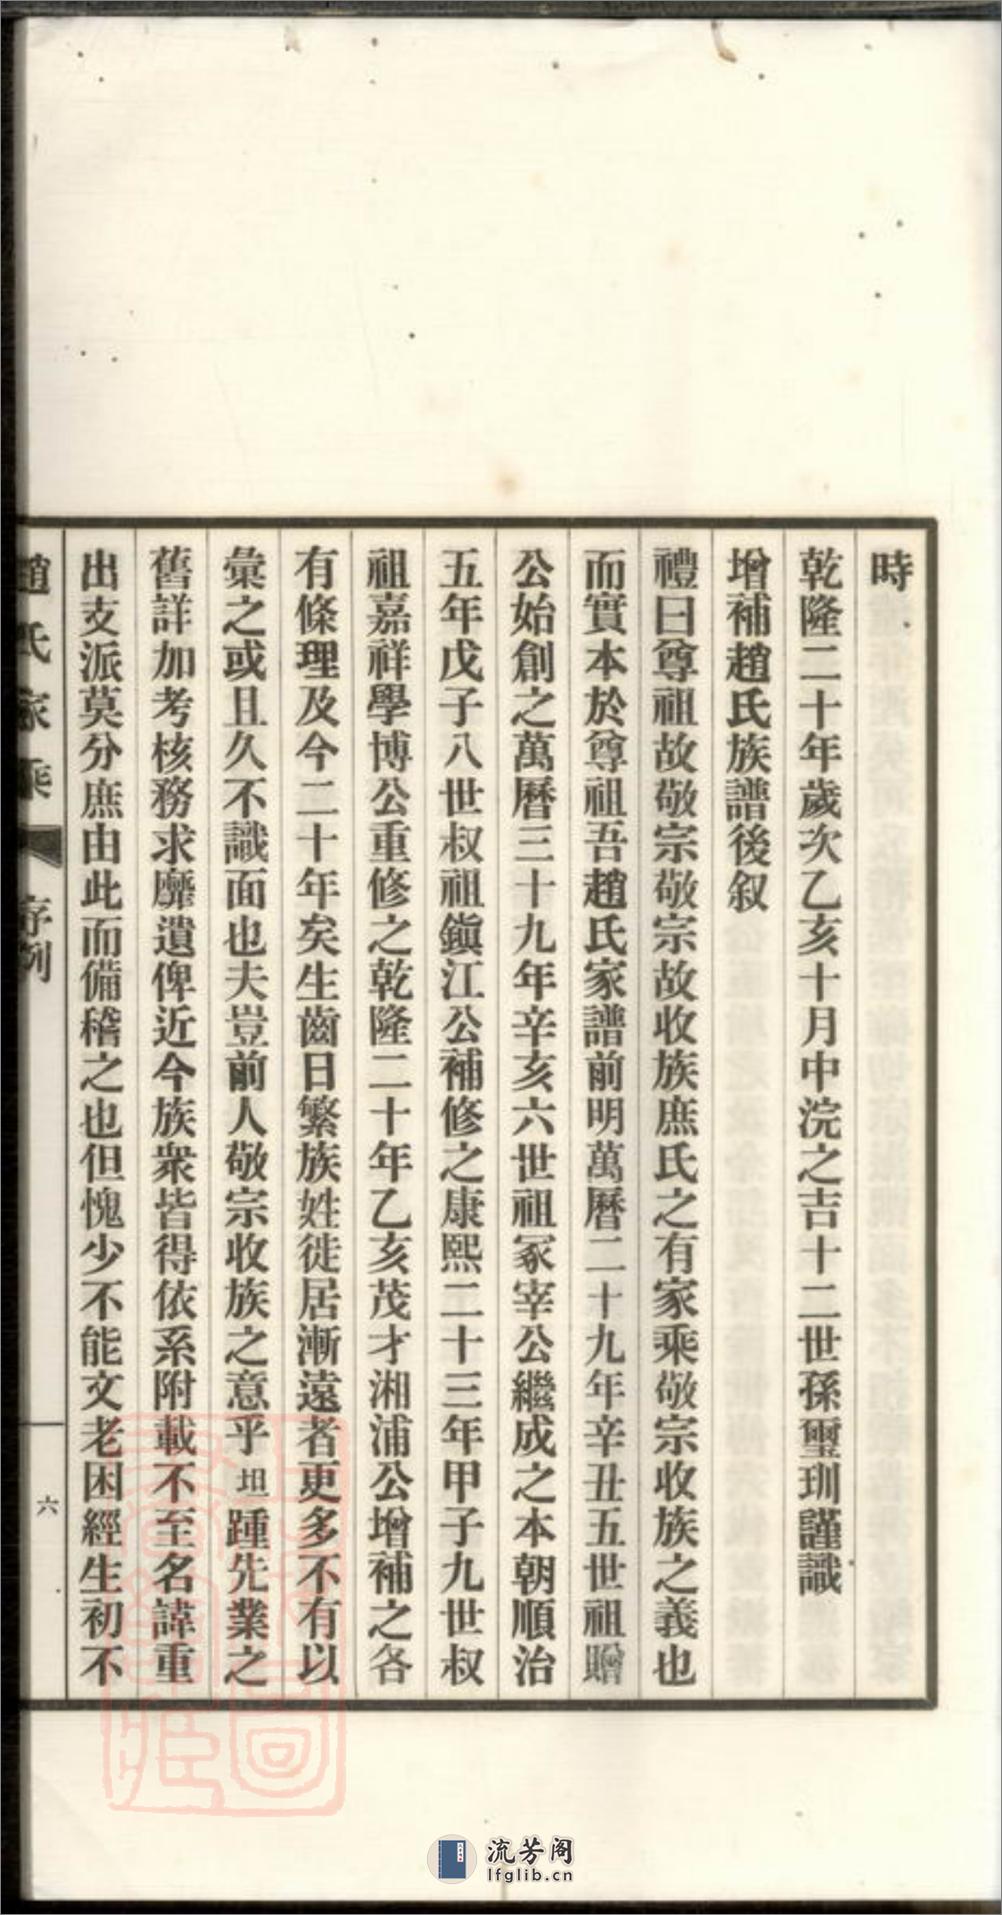 時
乾隆二十年歲次乙亥十月中浣之吉十二世孫璽玔謹識
增補趙氏族譜後叙
禮曰尊祖故敬宗敬宗故收族庶氏之有家乘敬宗收族之義也
而實本於尊祖吾趙氏家譜前明萬曆二十九年辛丑五世祖贈
公始創之萬曆三十九年辛亥六世祖冢宰公繼成之本朝順治
五年戊子八世叔祖鎭江公補修之康熙二十三年甲子九世叔
祖嘉祥學博公重修之乾隆二十年乙亥茂才湘浦公增補之各
有條理及今二十年矣生齒日繁族姓徙居漸遠者更多不有以
彙之或且久不識面也夫豈前人敬宗收族之意乎坦踵先業之
舊詳加考核務求靡遺俾近今族衆皆得依系附載不至名諱重
出支派莫分庶由此而備稽之也但愧少不能文老困經生初不
趙氏家乘
序例
六
流芳阁
lfglib.cn